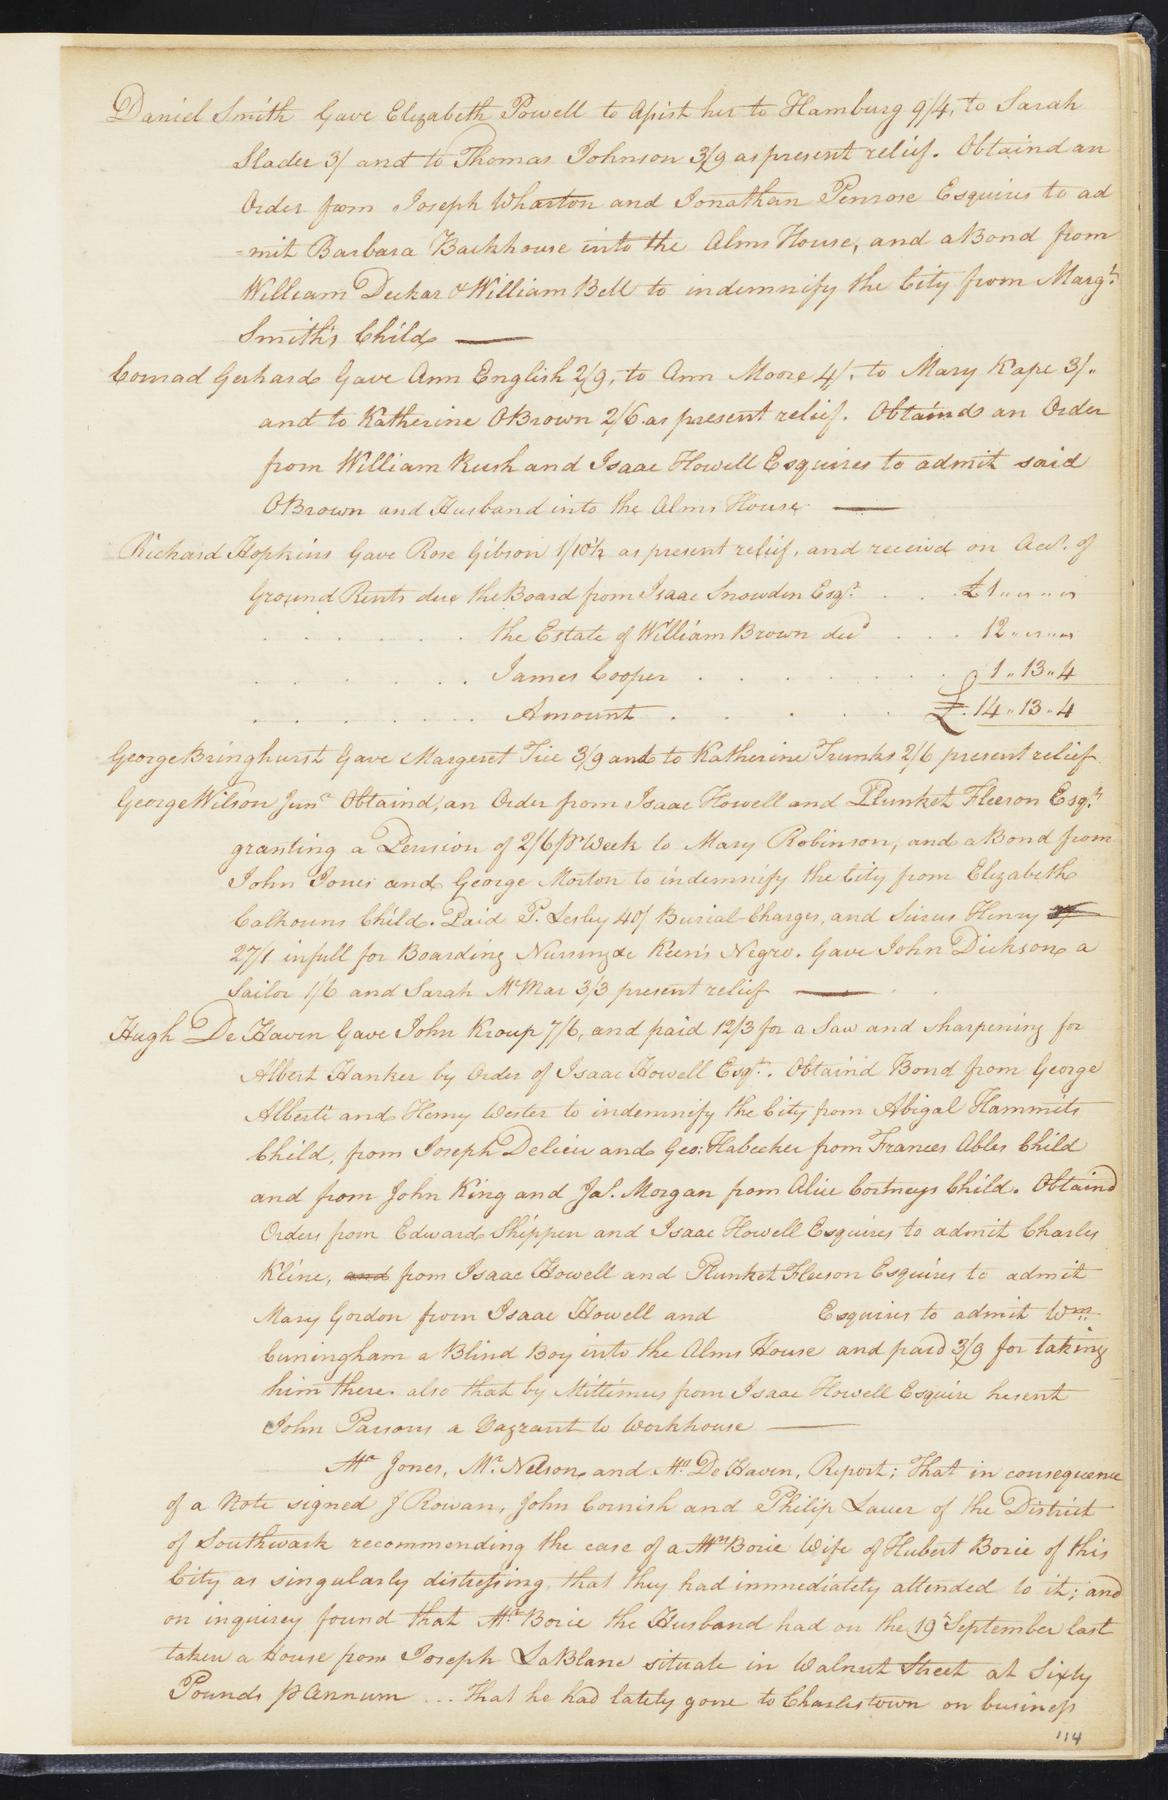 Daniel Smith Gave Elizabeth Powell to Assist her to Hamburg 9/4, to Sarah
Slader 3/ and to Thomas Johnson 3/9 as present relief. Obtaind an
Order from Joseph Wharton and Jonathan Penrose Esquires to ad
=mit Barbara Backhouse into the Alms House, and a Bond from
William Deckar & William Bell to indemnify the City from Margt.
Smith's Child
Conrad Gerhard Gave Ann English 2/9, to Ann Moore 4/. to Mary Kape 3/.
and to Katherine OBrown 2/6 as present relief. Obtaind an Order
from William Rush and Isaac Howell Esquires to admit said
OBrown and Husband into the Alms House
Richard Hopkins Gave Rose Gibson 1/10½ as present relief, and receivd on Acct. of
Ground Rents due the Board from Isaac Snowden Esqr. . . . £1 " " " "
. . . . . . the Estate of William Brown decd . . . 12 " " " "
. . . . . . James Cooper . . . . . . . 1 " 13 " 4
. . . . . . Amount . . . . £. 14 " 13 " 4
George Bringhurst Gave Margeret Tice 3/9 and to Katherine Trunks 2/6 present relief
George Wilson Junr. Obtaind, an Order from Isaac Howell and Plunket Fleeson Esqrs.
granting a Pension of 2/6 pr Week to Mary Robinson, and a Bond from
John Jones and George Morton to indemnify the City from Elizabeth
Calhouns Child. Paid P. Lesley 40/ Burial Charges, and Sirus Henry
27/1 infull for Boarding Nursing &c Keen's Negro. Gave John Dickson a
Sailor 1/6 and Sarah McMar 3/3 present relief
Hugh De Haven Gave John Kroup 7/6, and paid 12/3 for a Saw and sharpening for
Albert Hanker by Order of Isaac Howell Esqr. Obtain'd Bond from George
Alberti and Henry Wester to indemnify the City from Abigal Hammits
Child, from Joseph Delieu and Geo: Habecker from Frances Ables Child
and from John King and Jas. Morgan from Alice Cortneys Child. Obtaind
Orders from Edward Shippen and Isaac Howell Esquires to admit Charles
Kline, and from Isaac Howell and Plunket Fleeson Esquires to admit
Mary Gordon from Isaac Howell and Esquires to admit Wm.
Cuningham a Blind Boy into the Alms House and paid 3/9 for taking
him there. also that by Mittimus from Isaac Howell Esquire he sent
John Parsons a Vagrant to Workhouse
Mr. Jones, Mr. Nelson, and Mr. De Haven, Report; That in consequence
of a Note signed J Rowan, John Cornish and Philip Lauer of the District
of Southwark recommending the case of a Mrs Borie Wife of Hubert Borie of this
City as singularly distressing, that they had immediately attended to it; and
on inquirey found that Mr. Borie the Husband had on the 19th September last
taken a House from Joseph LaBlane situate in Walnut Street at Sixty
Pounds p Annum ... That he had lately gone to Charlestown on business
114